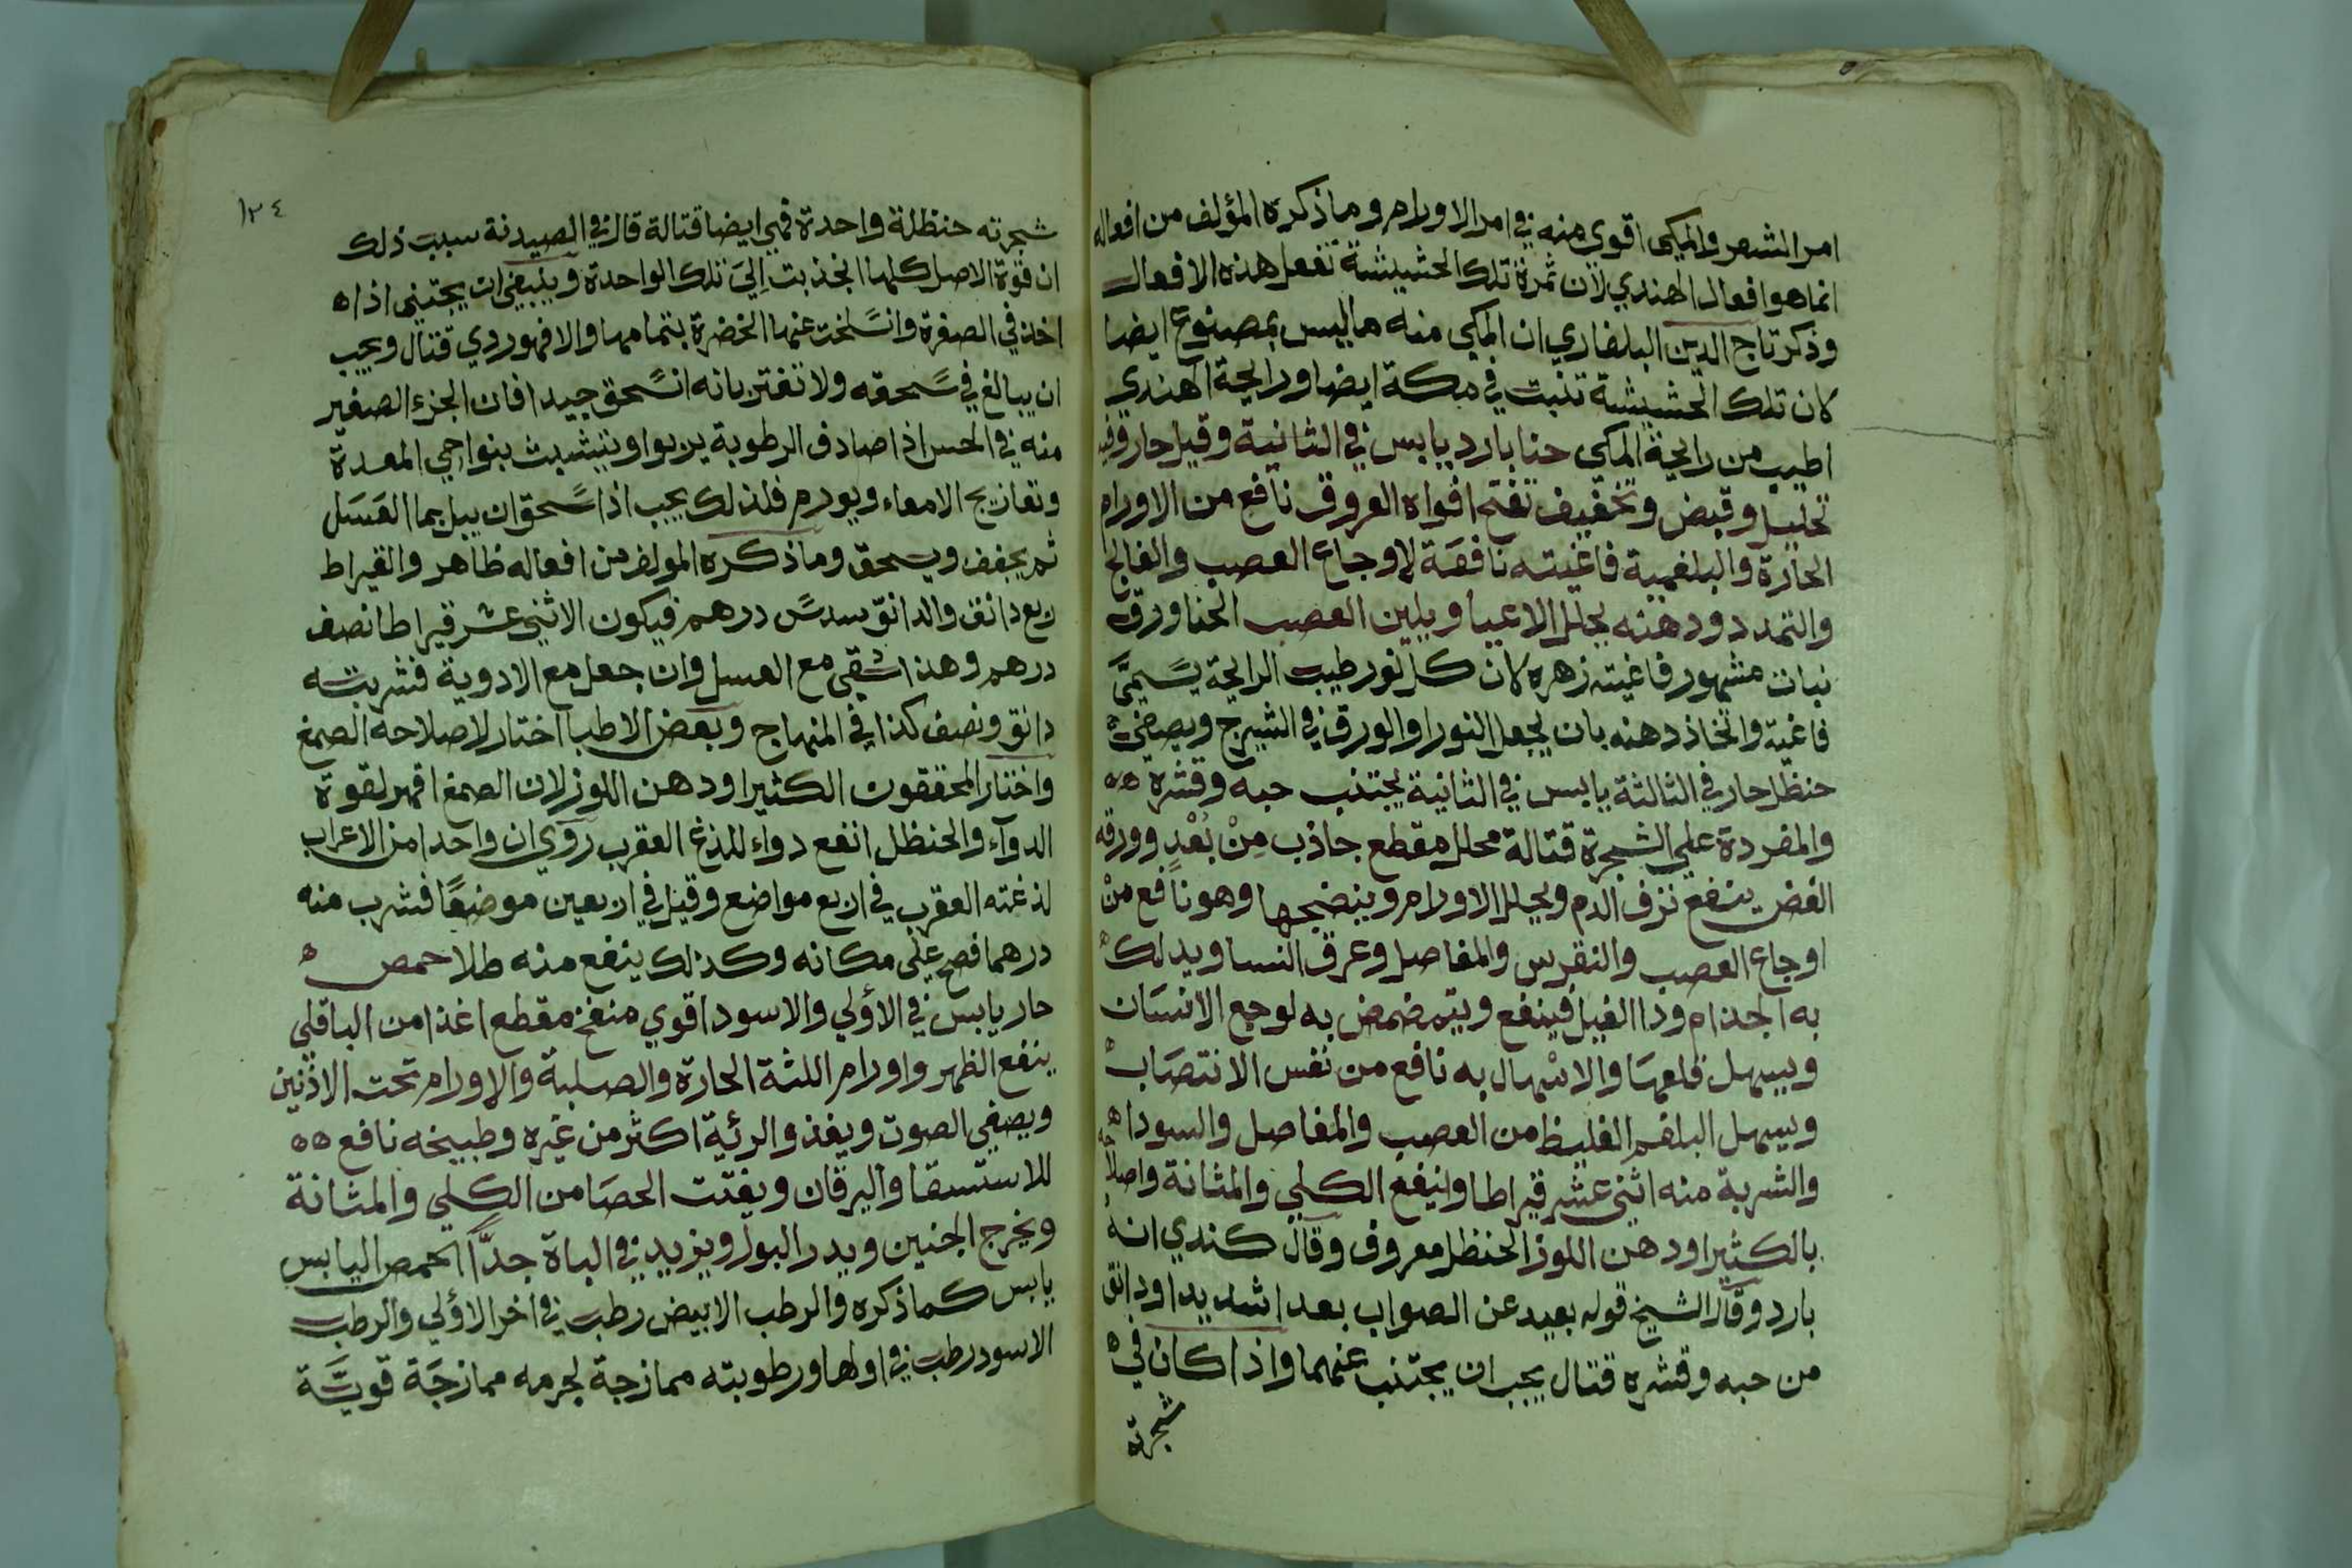 امر الشعر والمكي اقوي منه في امر الاورام وما ذكره المؤلف من افعاله
انما هو افعال الهندي لان ثمرة تلك الحشيشة تفعل هذه الافعال
وذكر تاج الدين البلغاري ان المكي منه ما ليس بمصنوع ايضا
كان تلك الحشيشة تنبت في مكة ايضا ورايحة الهندي
اطيب من رايحة المكي حنا بارد يابس في الثانية وقيل حار وفيه
تحليل وقبض وتخفيف تفتح افواه العروق نافع من الاورام
الحارة والبلغمية فاغيته نافعة لاوجاع العصب والفالج
والتمدد ودهنه يحلل الاعيا ويلين العصب الحنا ورق
نبات مشهور فاغيته زهره لان كل نور طيب الرايحة يسمي
فاغية واتخاذ دهنه بان يجعل النور او الورق في الشيرج ويصفي
حنظل حار في الثالثة يابس في الثانية يجتنب حبه وقشره
والمفردة علي الشجرة قتالة محلل مقطع جاذب من بعد وورقه
الغض ينفع نزف الدم ويحلل الاورام وينضجها وهو نافع من
اوجاع العصب والنقرس والمفاصل وعرق النسا ويدلك
به الجذام وذا الفيل فينفع ويتمضمض به لوجع الاسنان
ويسهل قلعها والاسهال به نافع من نفس الانتصاب
ويسهل البلغم الغليظ من العصب والمفاصل والسودا
والشربة منه اثني عشر قيراطا وينفع الكلي والمثانة واصلاحه
بالكثيرا ودهن اللوز الحنظل معروف وقال كندي انه
بارد وقال الشيخ قوله بعيد عن الصواب بعدا شديدا ودانق
من حبه وقشره قتال يجب ان يجتنب عنهما واذا كان في
شجرته
١٢٤
شجرته حنظلة واحدة فهي ايضا قتالة قال في الصيدنة سبب ذلك
ان قوة الاصل كلها انجذبت الي تلك الواحدة وينبغي ان يجتني اذا
اخذ في الصفرة وانسلخت عنها الخضرة بتمامها والا فهو ردي قتال ويجب
ان يبالغ في سحقه ولا تغتر بانه انسحق جيدا فان الجزء الصغير
منه في الحس اذا صادف الرطوبة يربوا وينشبث بنواحي المعدة
وتعاريج الامعاء ويورم فلذلك يجب اذا سحق ان يبل بما العسل
ثم يجفف ويسحق وما ذكره المولف من افعاله ظاهر والقيراط
ربع دانق والدانق سدس درهم فيكون الاثني عشر قيراطا نصف
درهم وهذا اسقي مع العسل وان جعل مع الادوية فشربته
دانق ونصف كذا في المنهاج وبعض الاطبا اختار لاصلاحه الصمغ
واختار المحققون الكثيرا ودهن اللوز لان الصمغ اقهر لقوة
الدوآء والحنظل انفع دواء للدغ العقرب روي ان واحدا من الاعراب
لدغته العقرب في اربع مواضع وقيل في اربعين موضعا فشرب منه
درهما فصح علي مكانه وكذلك ينفع منه طلا حمص
حار يابس في الاولي والاسود اقوي منفخ مقطع اغذا من الباقلي
ينفع الظهر واورام اللثة الحارة والصلبة والاورام تحت الاذنين
ويصفي الصوت ويغذو الرئية اكثر من غيره وطبيخه نافع
للاستسقا واليرقان ويفتت الحصا من الكلي والمثانة
ويخرج الجنين ويدر البول ويزيد في الباة جدا الحمص اليابس
يابس كما ذكره والرطب الابيض رطب في اخر الاولي والرطب
الاسود رطب في اولها ورطوبته ممازجة لجرمه ممازجة قوية